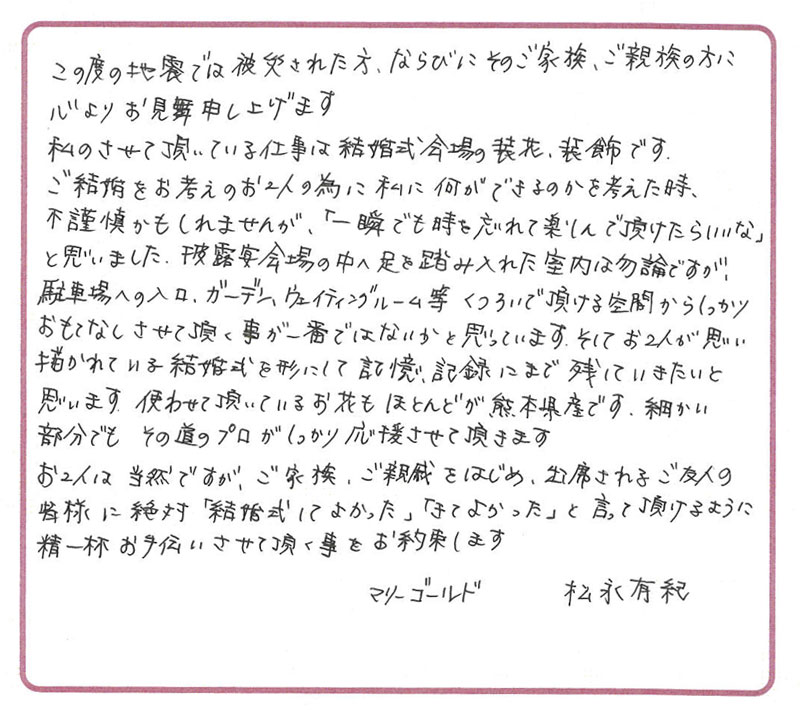 この度の地震では被災された方、ならびにそのご家族、ご親族の方に
心よりお見舞申し上げます
私のさせて頂いている仕事は結婚式会場の装花、装飾です.
ご結婚をお考えのお2人の為に私に何ができるのかを考えた時、
不謹慎かもしれませんが、「一瞬でも時を忘れて楽しんで頂けたらいいな」
と思いました. 披露宴会場の中へ足を踏み入れた室内は勿論ですが、
駐車場への入口、ガーデン、ウェイティングルーム等 くつろいで頂ける空間からしっかり
おもてなしさせて頂く事が一番ではないかと思っています. そしてお2人が思い
描かれている結婚式を形にして記憶、記録にまで残していきたいと
思います. 使わせて頂いているお花もほとんどが熊本県産です. 細かい
部分でも その道のプロがしっかり応援させて頂きます
お2人は当然ですが、ご家族、ご親戚をはじめ、出席されるご友人の
皆様に絶対「結婚式してよかった」「きてよかった」と言って頂けるように
精一杯お手伝いさせて頂く事をお約束します
マリーゴールド 松永有紀